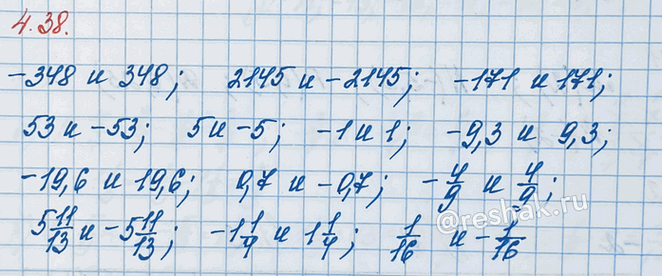 4.38.
-348 и 348; 2145 и -2145; -171 и 171;
53 и -53; 5 и -5; -1 и 1; -9,3 и 9,3;
-19,6 и 19,6; 0,7 и -0,7; -4/9 и 4/9;
5 11/13 и -5 11/13; -1 1/4 и 1 1/4; 1/16 и -1/16
©reshak.ru